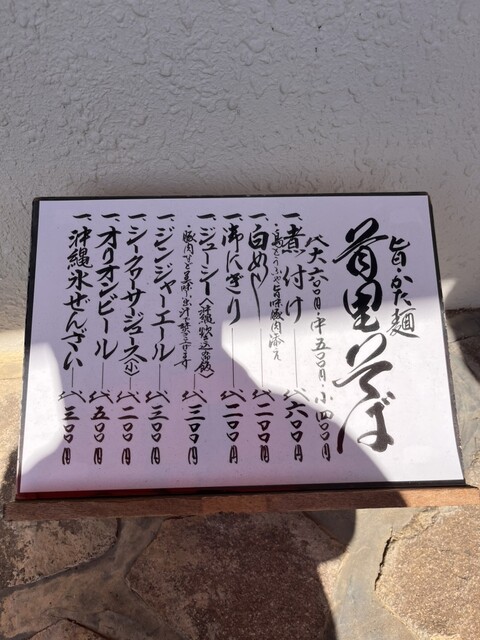 旨・かた麺
首里そば
大 六〇〇円・中 五〇〇円・小 四〇〇円
一、煮付け 六〇〇円
・島どうふや旨味豚肉添え
一、白めし 二〇〇円
一、御にぎり 二〇〇円
一、ジューシー(沖縄炊込御飯) 三〇〇円
一、ジンジャーエール 三〇〇円
一、シークワーサージュース(小) 二〇〇円
一、オリオンビール 五〇〇円
一、沖縄氷ぜんざい 三〇〇円